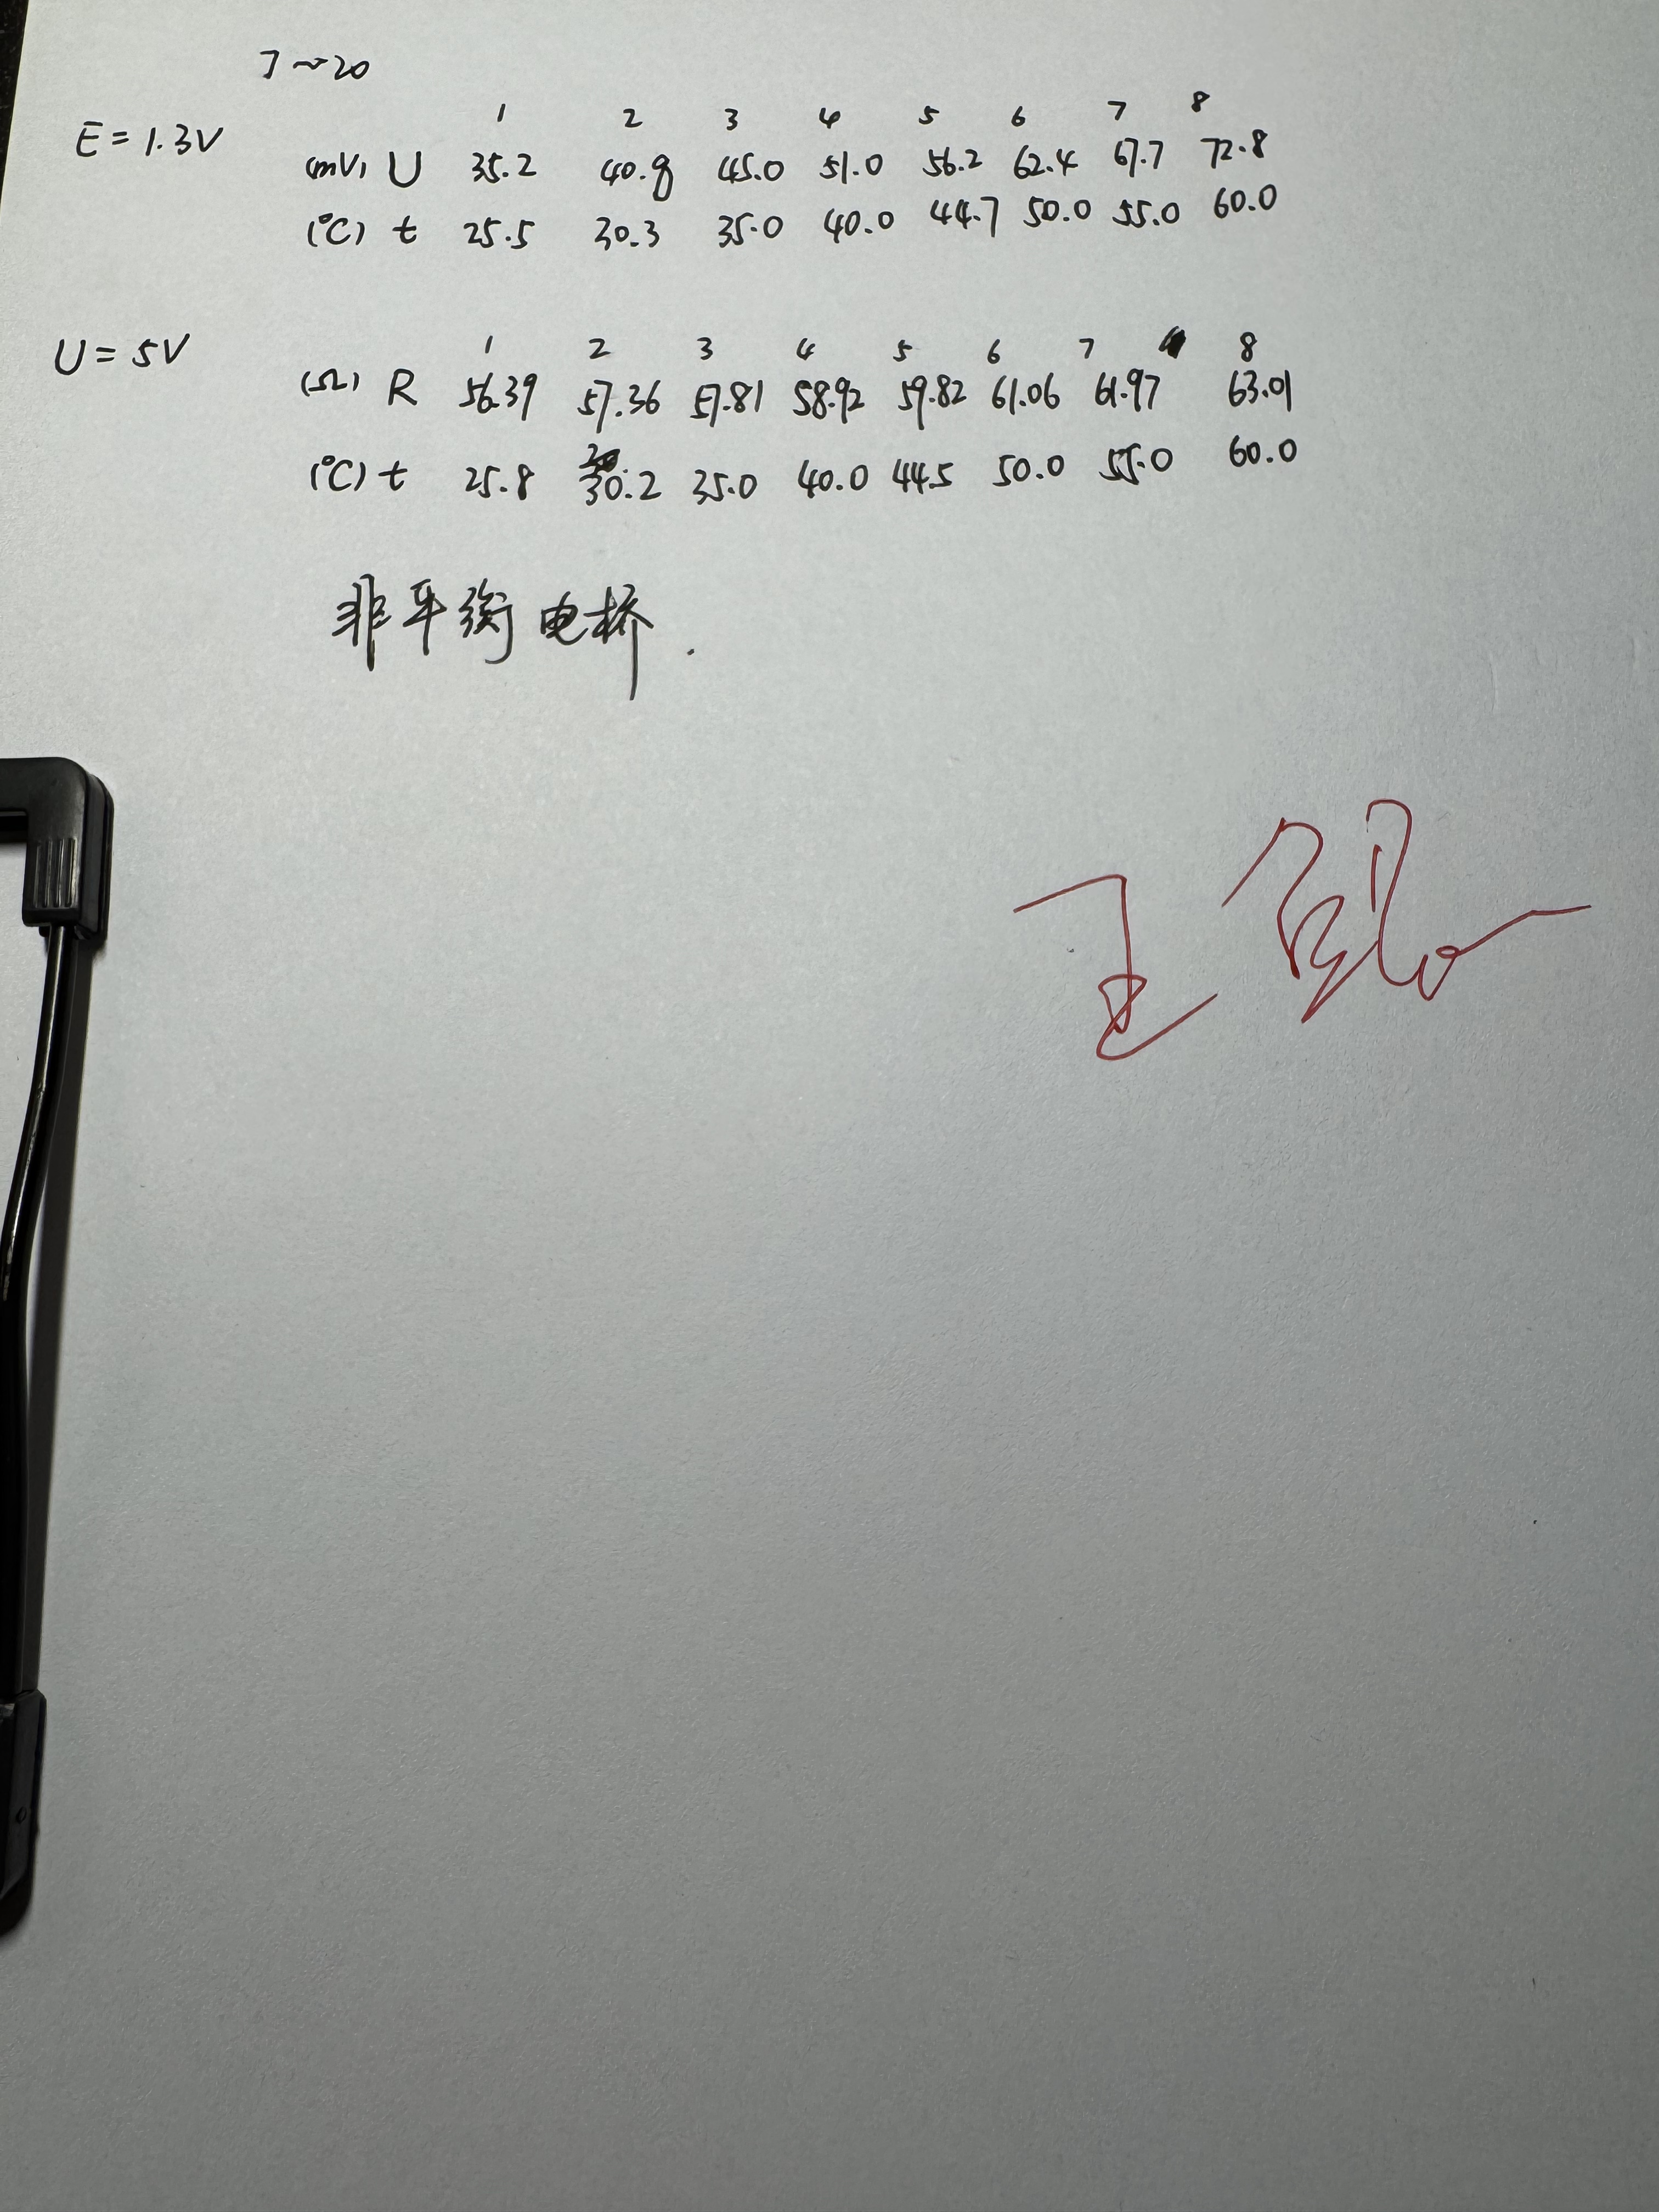 7~20
1 2 3 4 5 6 7 8
E = 1.3V (mV) U 35.2 40.9 45.0 51.0 56.2 62.4 67.7 72.8
(°C) t 25.5 30.3 35.0 40.0 44.7 50.0 55.0 60.0
1 2 3 4 5 6 7 8
U = 5V (Ω) R 56.39 57.36 57.81 58.92 59.82 61.06 61.97 63.01
(°C) t 25.8 30.2 35.0 40.0 44.5 50.0 55.0 60.0
非平衡电桥.